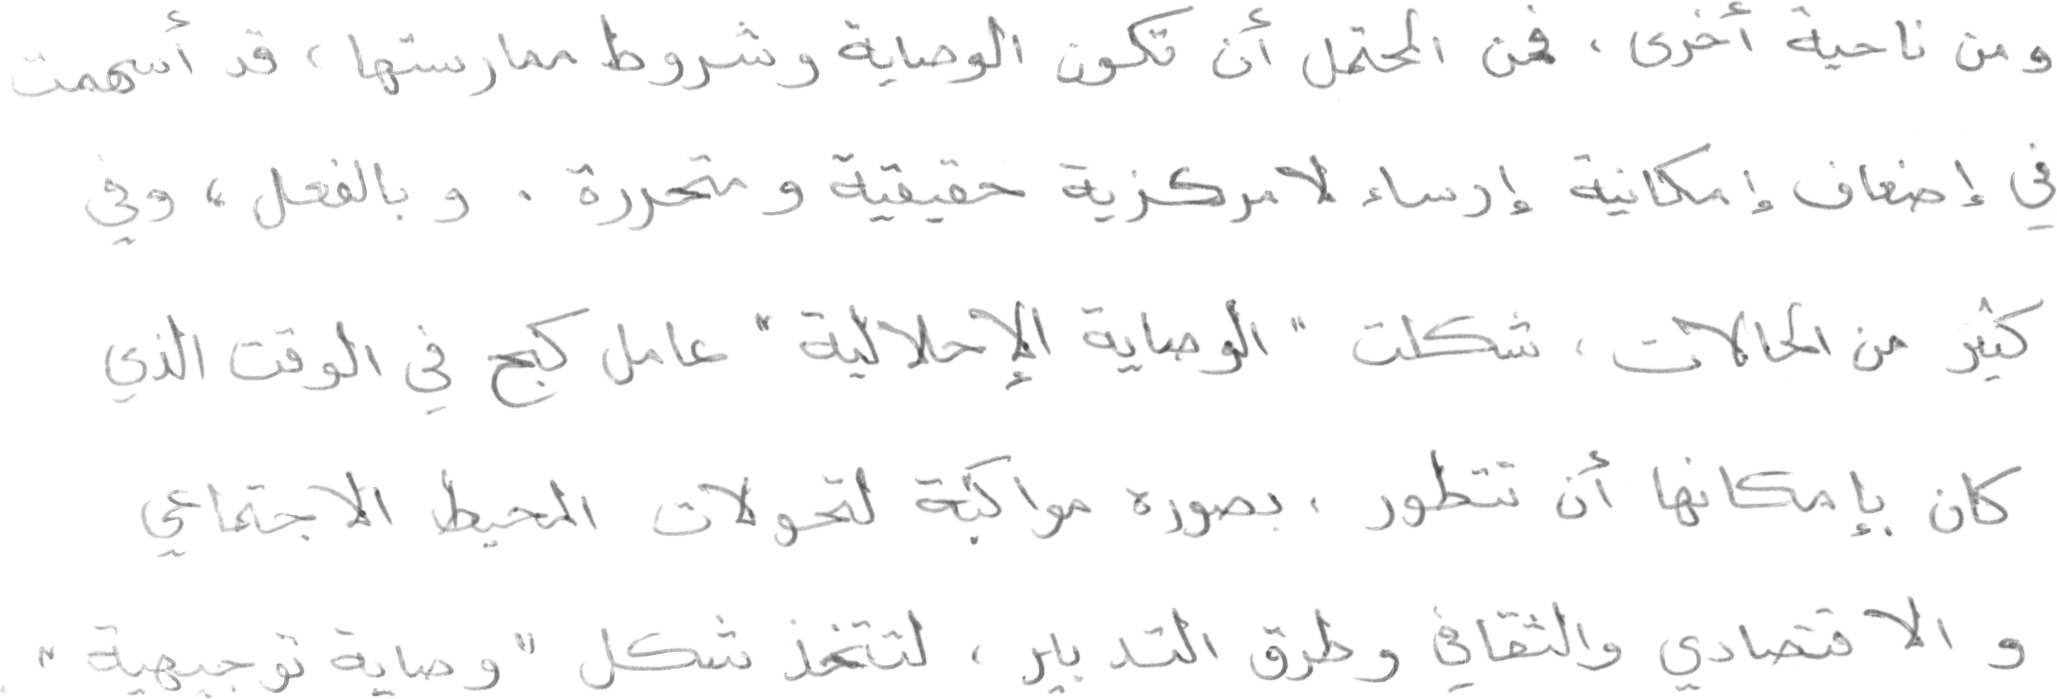 ومن ناحية أخرى، فمن المحتمل أن تكون الوصاية وشروط ممارستها، قد أسهمت
في إضعاف إمكانية إرساء لامركزية حقيقية ومتحررة. وبالفعل، وفي
كثير من الحالات، شكلت "الوصاية الإحلالية" عامل كبح في الوقت الذي
كان بإمكانها أن تتطور، بصورة مواكبة لتحولات المحيط الاجتماعي
والاقتصادي والثقافي وطرق التدبير، لتتخذ شكل "وصاية توجيهية".